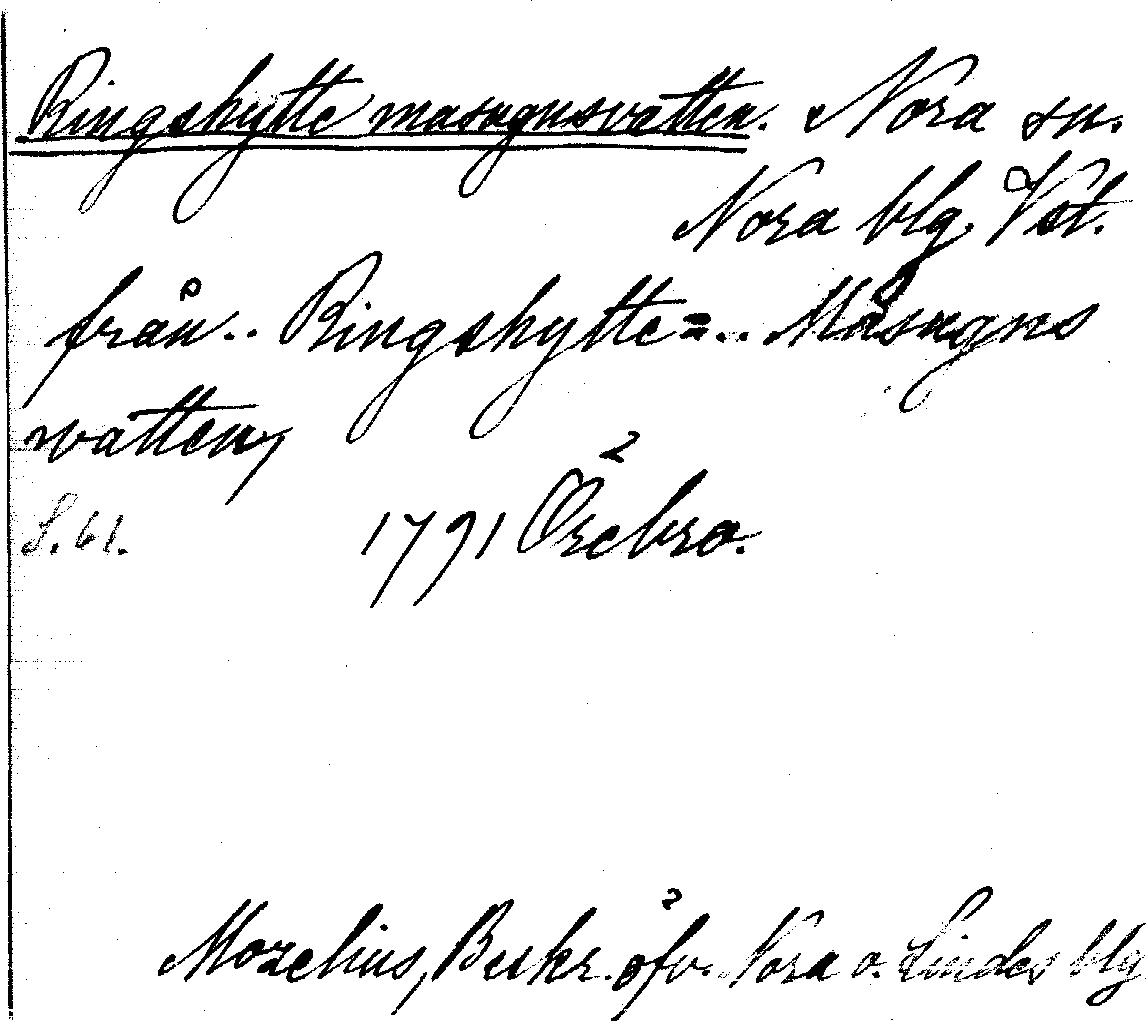 Ringshytte masugnsvatten. Nora sn.
Nora blg. Vst.
från.. Ringshytte=.. Måsugns
watten,
S. 61. 1791 Örebro.
Mozelius, Beskr. öfv. Nora o. Lindes blg